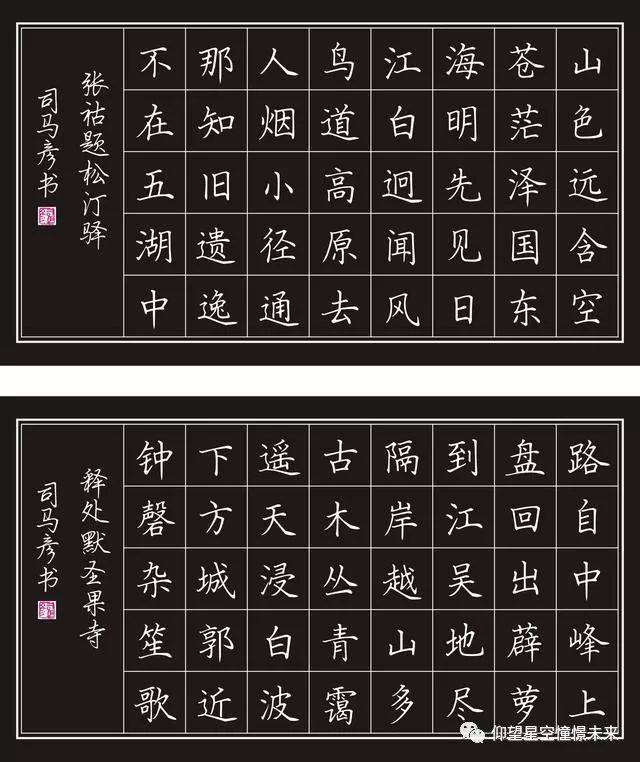 山色远含空
苍茫泽国东
海明先见日
江白迥闻风
鸟道高原去
人烟小径通
那知旧遗逸
不在五湖中
张祜题松汀驿
司马彦书
路自中峰上
盘回出薜萝
到江吴地尽
隔岸越山多
古木丛青霭
遥天浸白波
下方城郭近
钟磬杂笙歌
释处默圣果寺
司马彦书
仰望星空憧憬未来